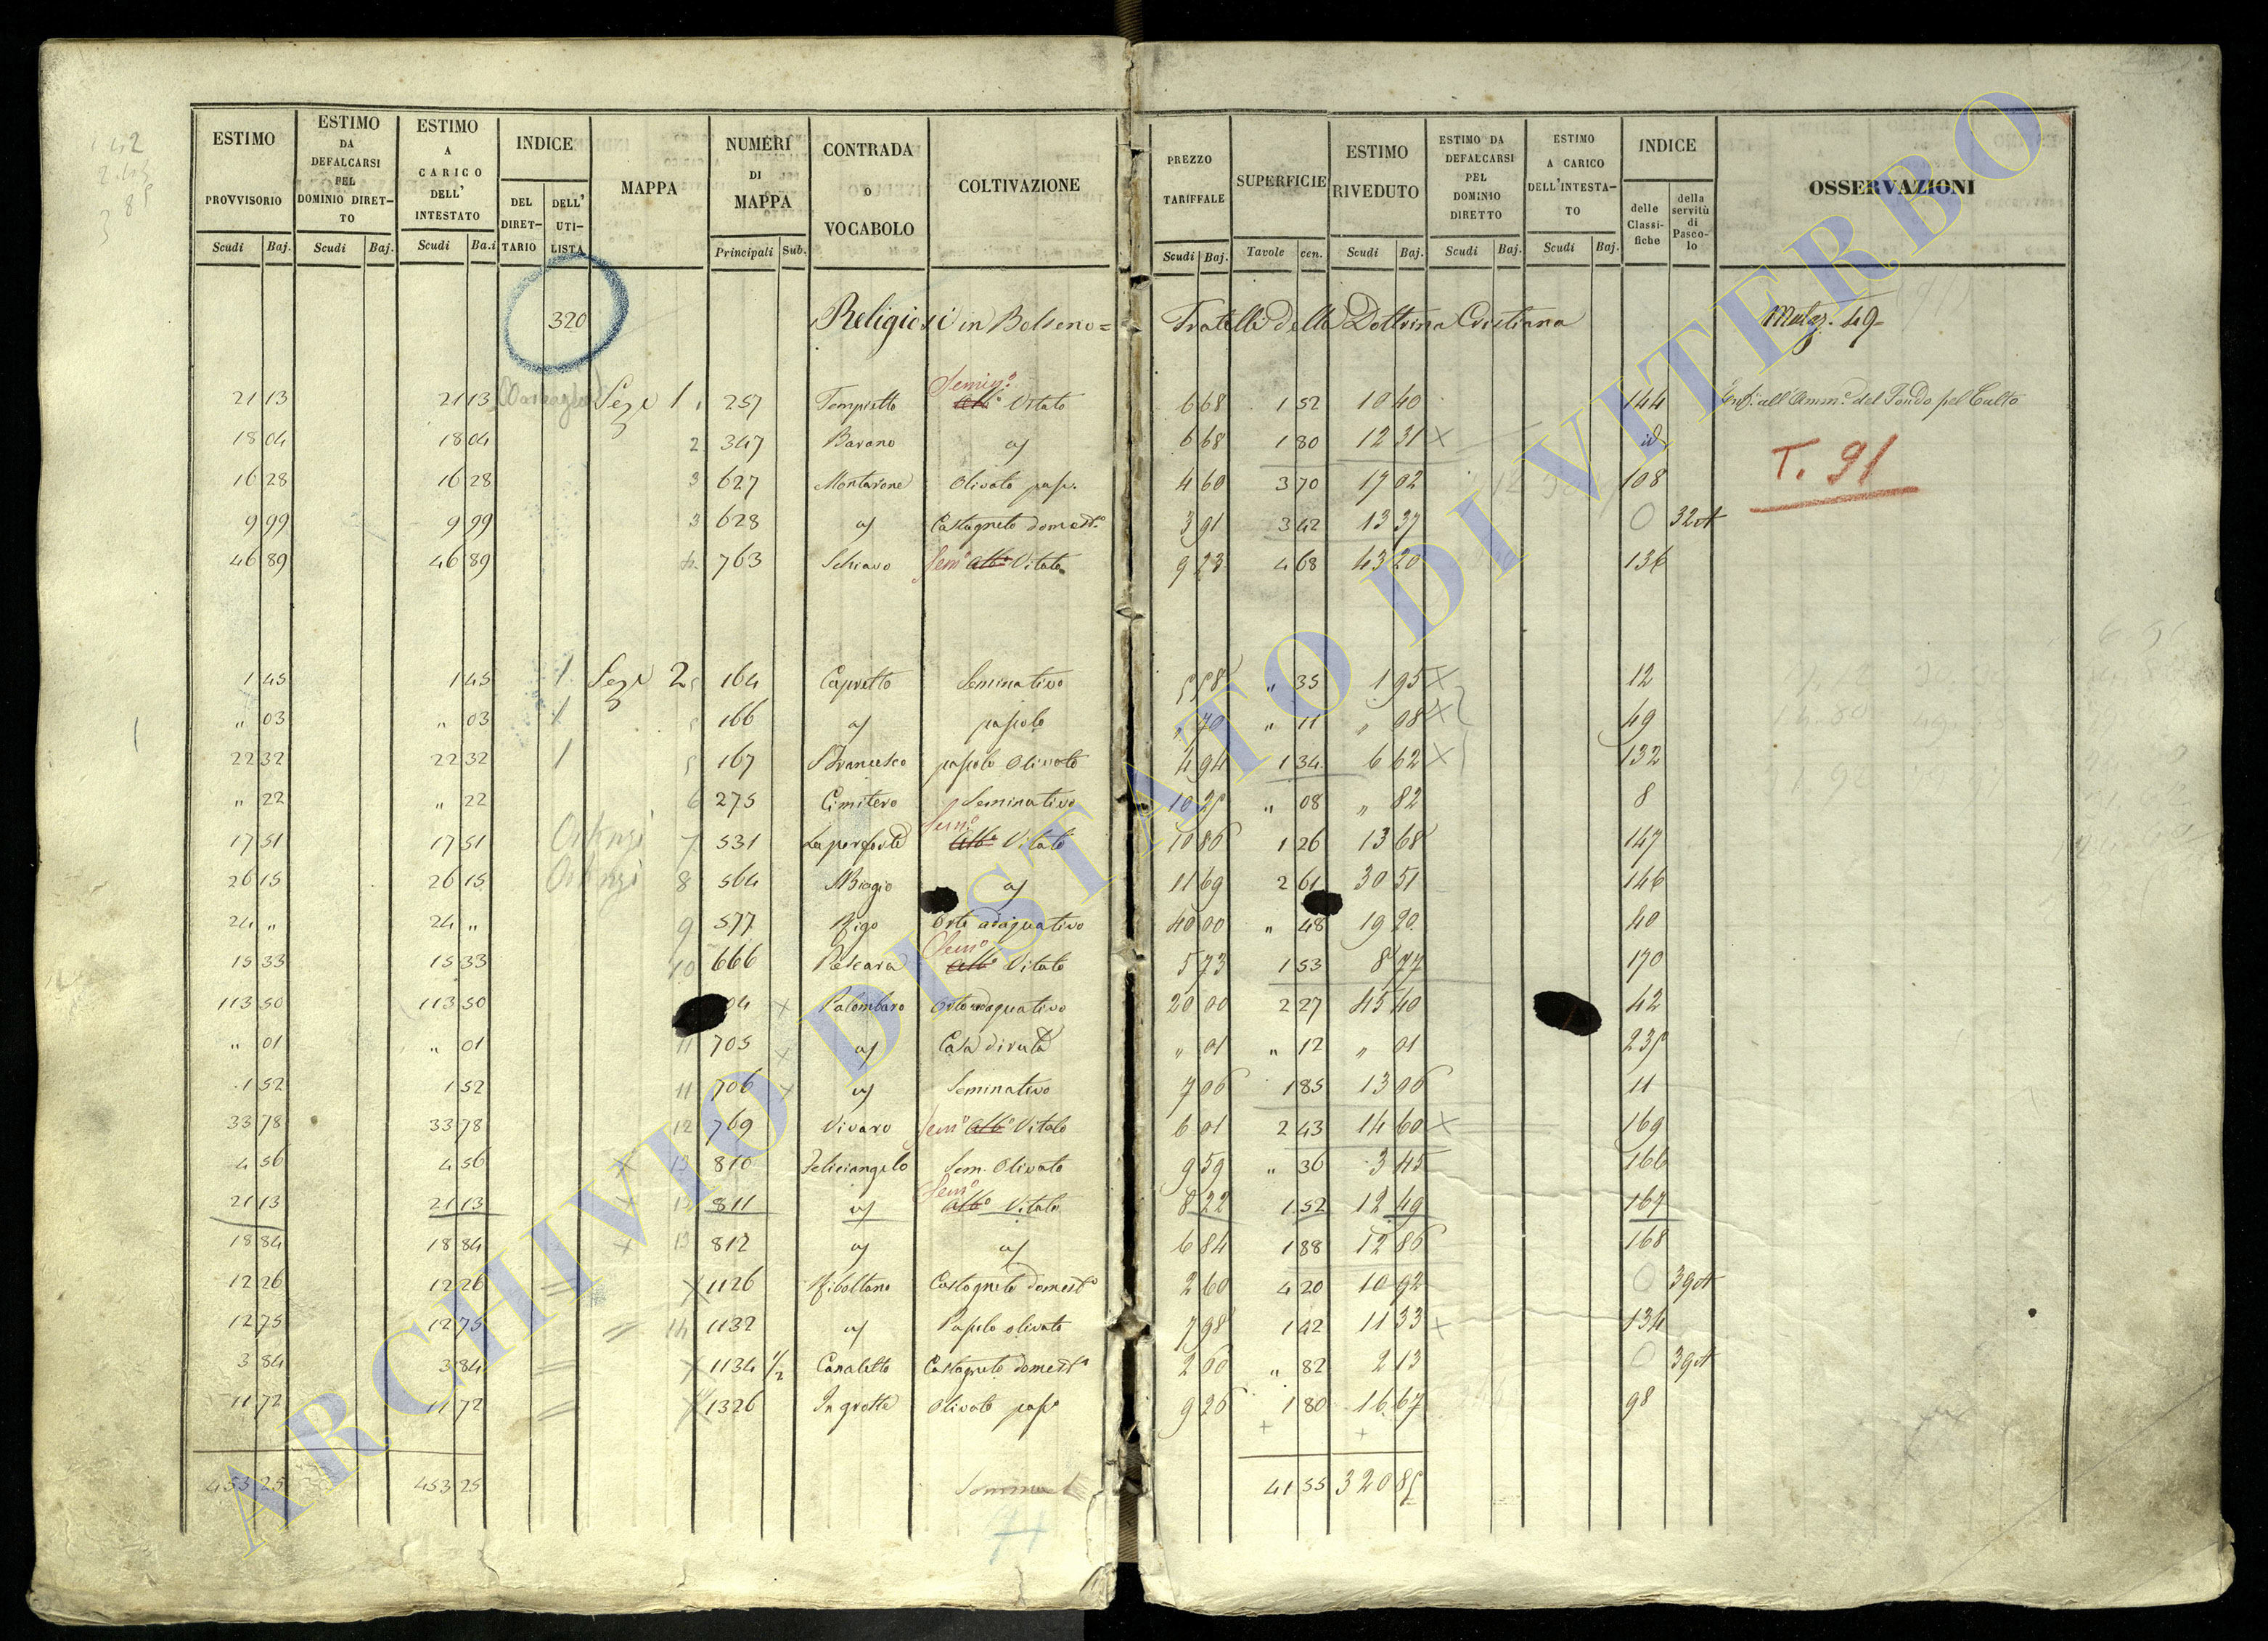 ESTIMO PROVVISORIO Scudi Baj. | ESTIMO DA DEFALCARSI PEL DOMINIO DIRETTO Scudi Baj. | ESTIMO A CARICO DELL' INTESTATO Scudi Ba.i | INDICE DEL DIRETTARIO DELL' UTILISTA | MAPPA | NUMERI DI MAPPA Principali Sub. | CONTRADA O VOCABOLO | COLTIVAZIONE | PREZZO TARIFFALE Scudi Baj. | SUPERFICIE Tavole cen. | ESTIMO RIVEDUTO Scudi Baj. | ESTIMO DA DEFALCARSI PEL DOMINIO DIRETTO Scudi Baj. | ESTIMO A CARICO DELL'INTESTATO Scudi Baj. | INDICE delle Classifiche della servitù di Pascolo | OSSERVAZIONI
320 Religiosi in Bolseno= Fratelli della Dottrina Cristiana
21 13 21 13 Sez.e 1 1 257 Tempietto Semin.o Alb.o Vitato 6 68 1 52 10 40 144 all'Amm.e del Fondo pel Culto
18 04 18 04 2 347 Barano aj 6 68 1 80 12 31 X id
T. 91
16 28 16 28 3 627 Montarone Olivato pas. 4 60 3 70 17 02 108
9 99 9 99 3 628 aj Castagneto domest.o 3 91 3 42 13 37 0 32
46 89 46 89 4 763 Schiavo Sem.o Alb.o Vitato 9 23 4 68 43 20 136
1 45 1 45 1 Sez.e 2 5 164 Capretto Seminativo 5 58 " 35 1 95 X 12
" 03 " 03 1 5 166 aj pascolo " 70 " 11 " 08 X 49
22 32 22 32 1 5 167 S Francesco pascolo Olivato 4 94 1 34 6 62 X 132
" 22 " 22 6 275 Cimitero Seminativo 10 25 " 08 " 82 8
17 51 17 51 7 531 Sem.o Alb.o Vitato 10 86 1 26 13 68 147
26 15 26 15 8 564 S Biagio aj 11 69 2 61 30 51 146
24 " 24 " 9 577 Rigo Orto adaquativo 40 00 " 48 19 20 40
15 33 15 33 10 666 Pescara Sem.o Alb.o Vitato 5 73 1 53 8 77 170
113 50 113 50 04 X Palombaro Orto adaquativo 20 00 2 27 45 40 42
" 01 " 01 11 705 X aj Casa diruta " 01 " 12 " 01 235
1 52 1 52 11 706 X aj Seminativo 7 06 1 85 13 06 11
33 78 33 78 12 769 Vivaro Sem.o Alb.o Vitato 6 01 2 43 14 60 X 169
4 56 4 56 X 13 810 Feliciangelo Sem. Olivato 9 59 " 36 3 45 166
21 13 21 13 X 13 811 aj Sem.o Alb.o Vitato 8 22 1 52 12 49 167
18 84 18 84 X 13 812 aj aj 6 84 1 88 12 86 168
12 26 12 26 X 1126 Ribaltano Castagneto domest.o 2 60 4 20 10 92 0 39
12 75 12 75 14 1132 aj Pascolo olivato 7 98 1 42 11 33 X 134
3 84 3 84 X 1134 1/2 Canaletto Castagneto domest.o 2 60 " 82 2 13 0 39
11 72 11 72 X 1326 In grotte Olivato pas.o 9 26 1 80 16 67 98
453 25 453 25 41 55 320 85
ARCHIVIO DI STATO DI VITERBO